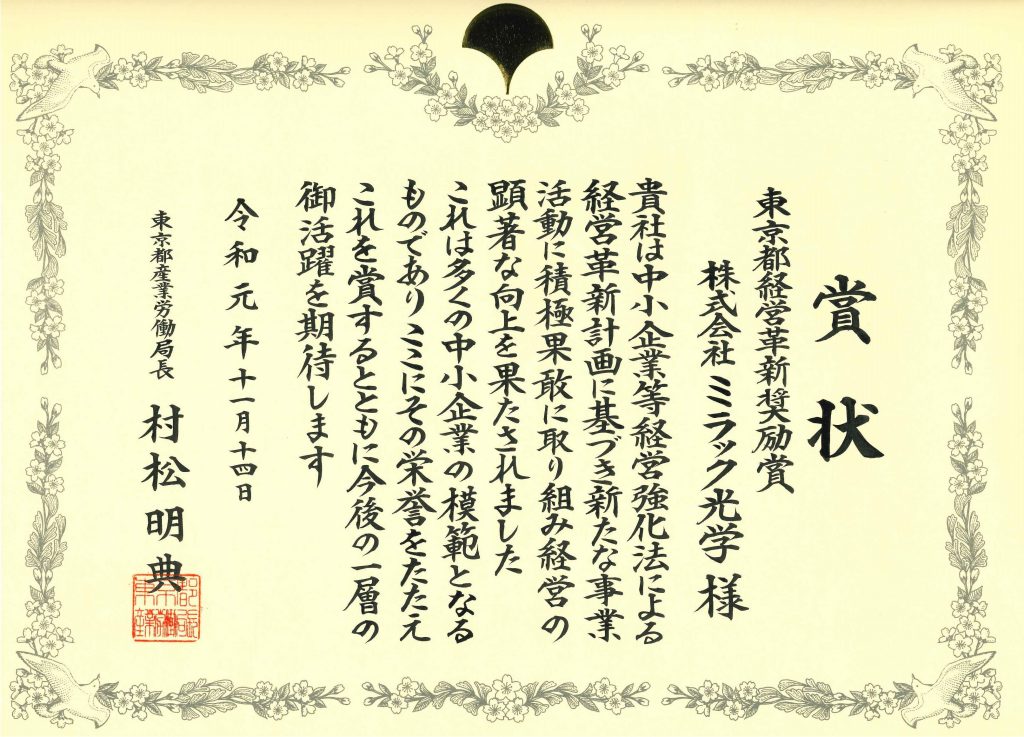 賞状
東京都経営革新奨励賞
株式会社 ミラック光学 様
貴社は中小企業等経営強化法による
経営革新計画に基づき新たな事業
活動に積極果敢に取り組み経営の
顕著な向上を果たされました
これは多くの中小企業の模範となる
ものでありここにその栄誉をたたえ
これを賞するとともに今後の一層の
御活躍を期待します
令和元年十一月十四日
東京都産業労働局長 村松明典